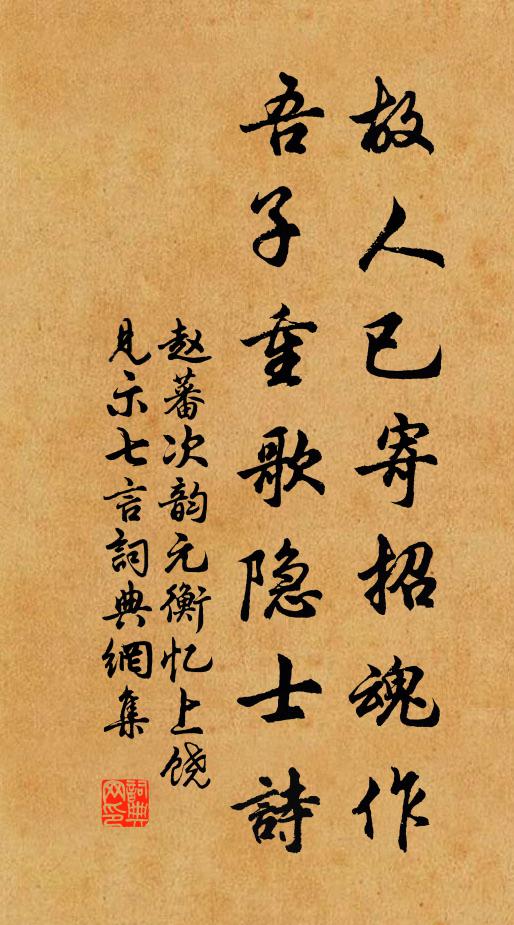 故人已寄招魂作
吾子重歌隐士詩
赵蕃次韵元衡忆上饶
見示七言詞典網集
詞典网印